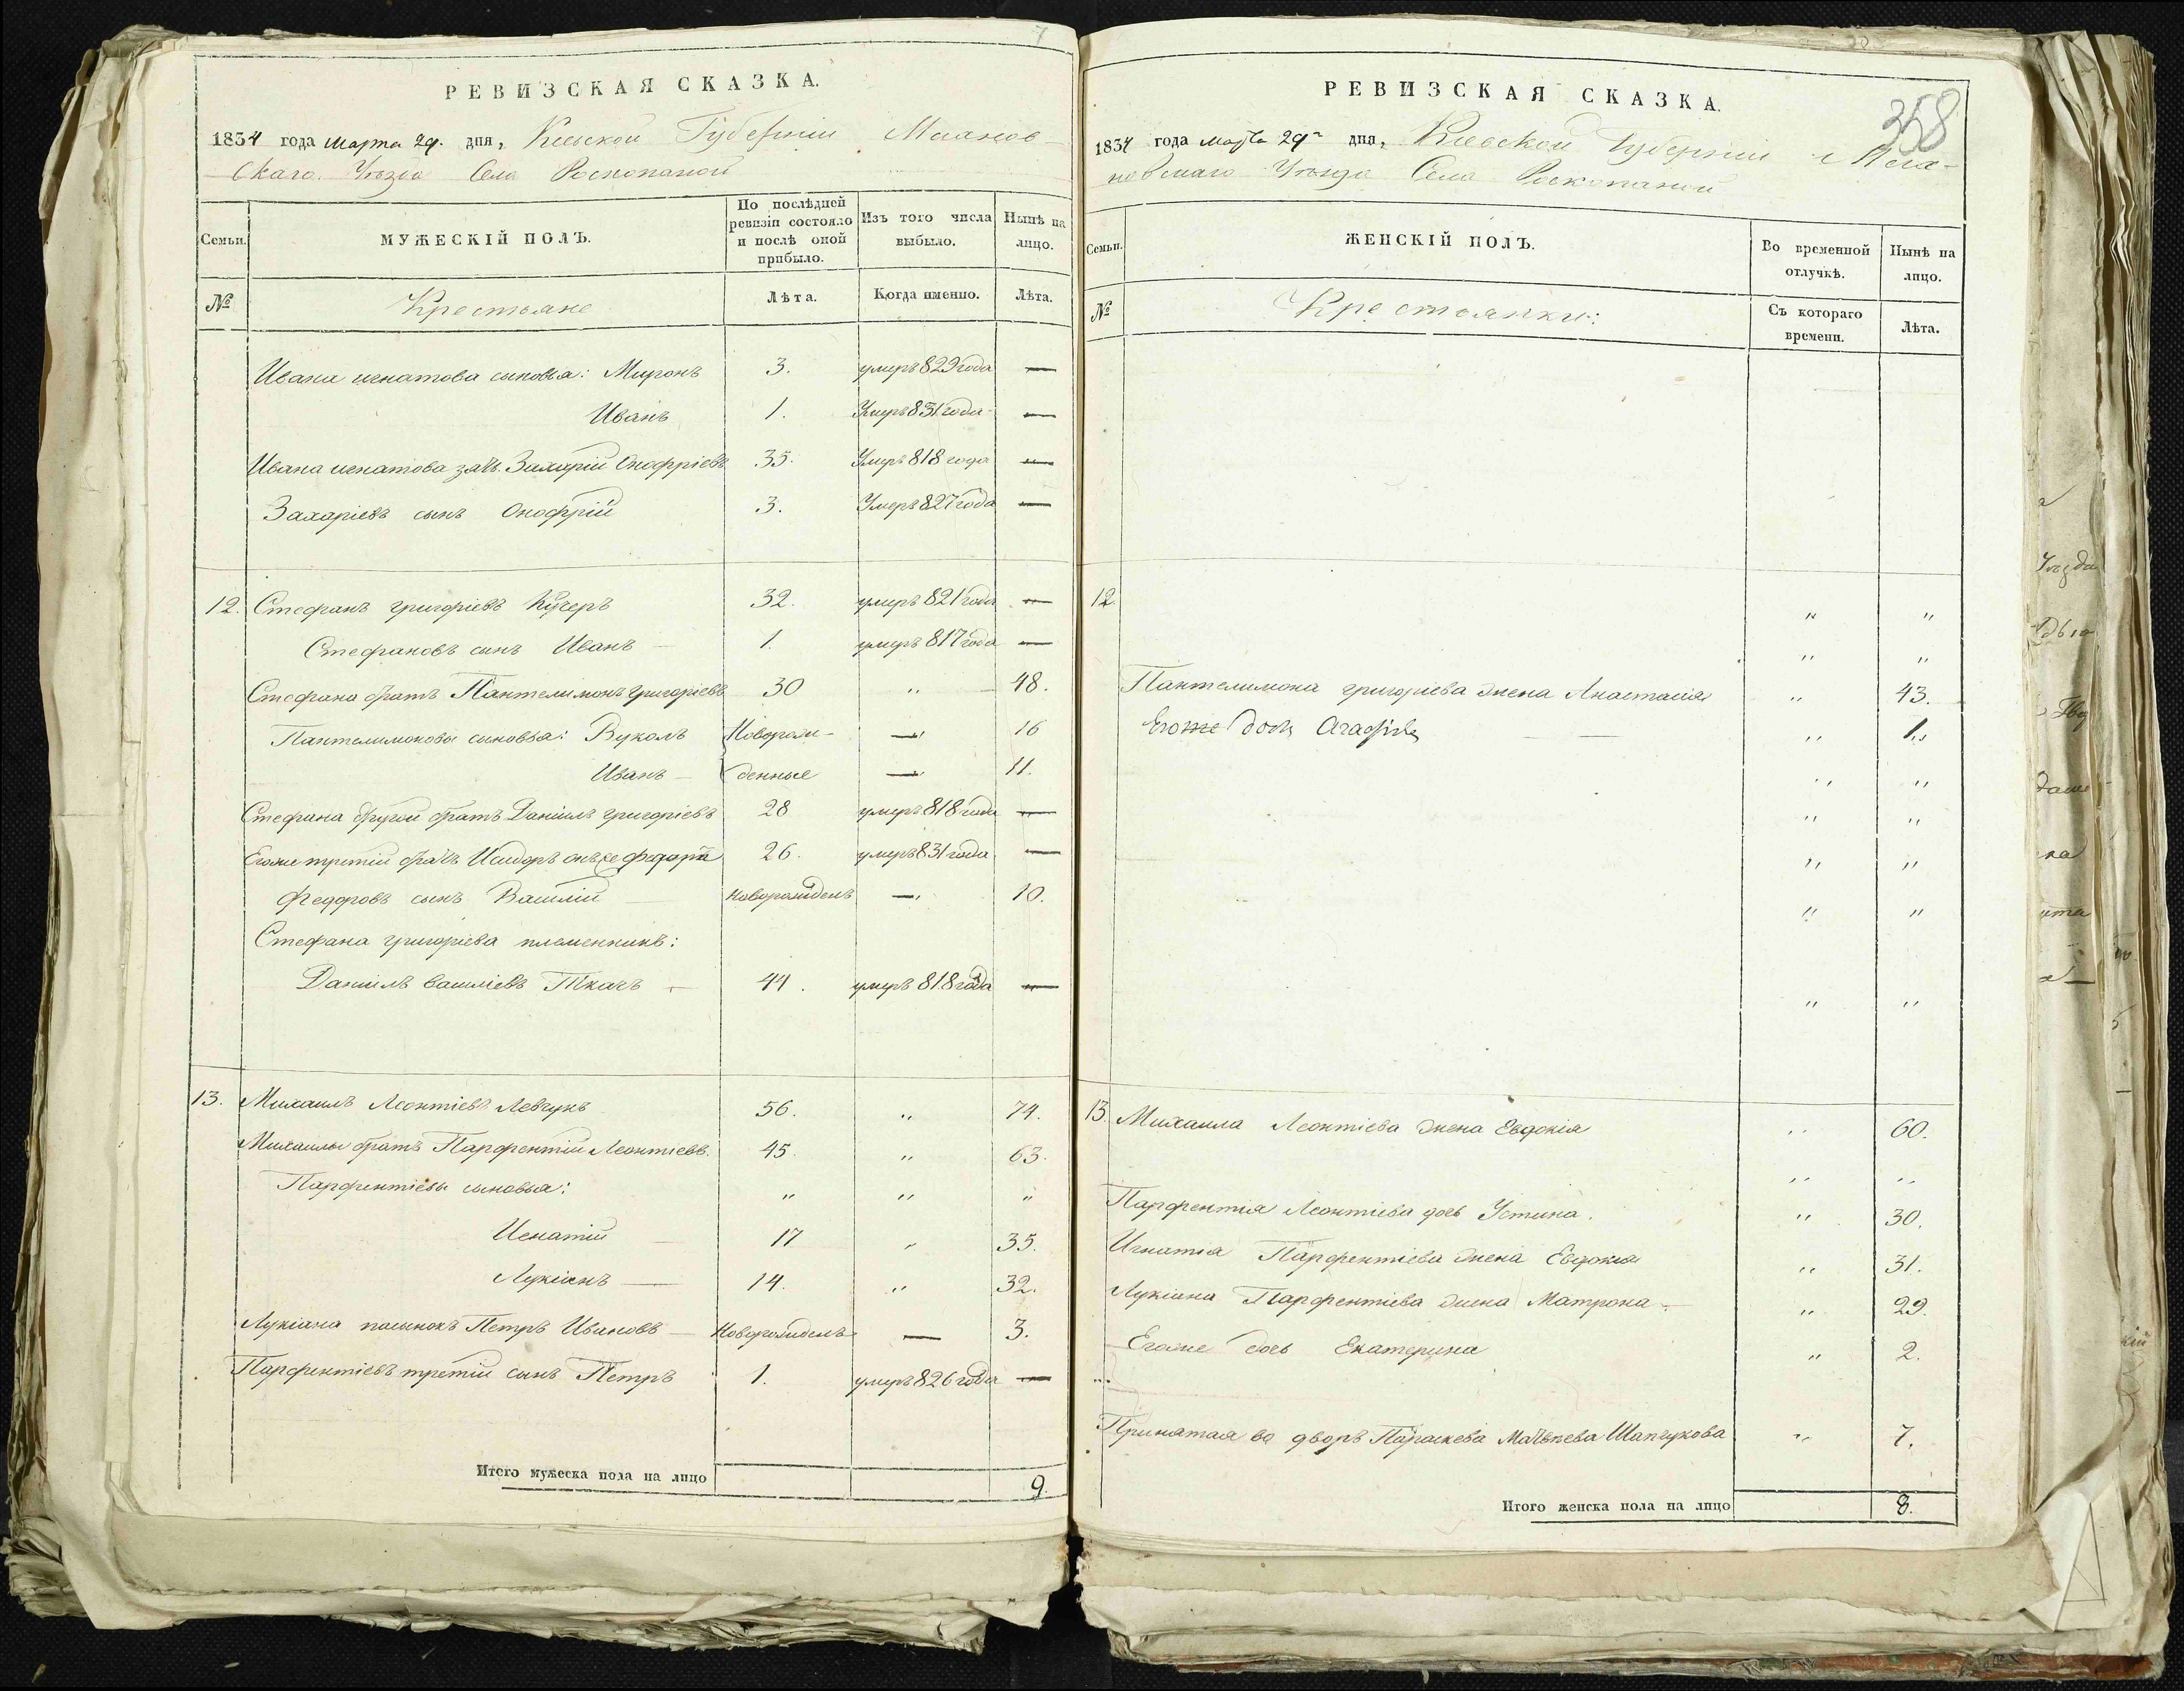 РЕВИЗСКАЯ СКАЗКА.
1834 года марта 29. дня, Кіевской Губерніи
скаго Уѣзда Села Роскопаной
Семьи.
МУЖЕСКІЙ ПОЛЪ.
По послѣдней ревизіи состояло и послѣ оной прибыло.
Изъ того числа выбыло.
Нынѣ на лицо.
№
Крестьяне
Лѣта.
Когда именно.
Лѣта.
Ивана игнатова сыновья: Миронъ 3. умеръ 829 года —
Иванъ 1. Умеръ 831 года —
Ивана игнатова зять Захарій Онофріевъ 35. Умеръ 818 года —
Захаріевъ сынъ Онофрій 3. Умеръ 827 года —
12. Стефанъ григоріевъ Кучеръ 32. умеръ 821 года —
Стефановъ сынъ Иванъ — 1. умеръ 817 года —
Стефана братъ Пантелимонъ григоріевъ 30 „ 48.
Пантелимоновы сыновья: Вуколъ Новорож- — 16
Иванъ — денные — 11.
Стефана другой братъ Даніилъ григоріевъ 28 умеръ 818 года —
Егоже третій братъ Исидоръ онъже федоръ 26. умеръ 831 года —
Федоровъ сынъ Василій — новорожденъ — 10.
Стефана григоріева племенникъ:
Даніилъ василіевъ Ткачъ — 44. умеръ 818 года —
13. Михаилъ Леонтіевъ Левчукъ 56. „ 74.
Михаилы братъ Парфентій Леонтіевъ. 45. „ 63.
Парфентіевы сыновья: „ „ „
Игнатій — 17 „ 35.
Лукіянъ — 14. „ 32.
Лукіана пасынокъ Петръ Ивановъ — Новорожденъ — 3.
Парфентіевъ третій сынъ Петръ 1. умеръ 826 года —
Итого мужеска пола на лицо 9.
358
РЕВИЗСКАЯ СКАЗКА.
1834 года марта 29 дня, Кіевской Губерніи
новскаго Уѣзда Села Роскопаной
Семьи.
ЖЕНСКІЙ ПОЛЪ.
Во временной отлучкѣ.
Нынѣ на лицо.
№
Крестьянки:
Съ котораго времени.
Лѣта.
12. „ „
„ „
Пантелимона григоріева жена Анастасія „ 43.
Егоже дочь — — „ 1.
„ „
„ „
„ „
„ „
„ „
13. Михаила Леонтіева жена Евдокія „ 60.
„ „
Парфентія Леонтіева дочь Устина. „ 30.
Игнатія Парфентіева жена Евдокія „ 31.
Лукіана Парфентіева жена Матрона — „ 29.
Егоже дочь Екатерина „ 2.
Принятая во дворъ Параскева Матвѣева Шапчукова „ 7.
Итого женска пола на лицо 8.